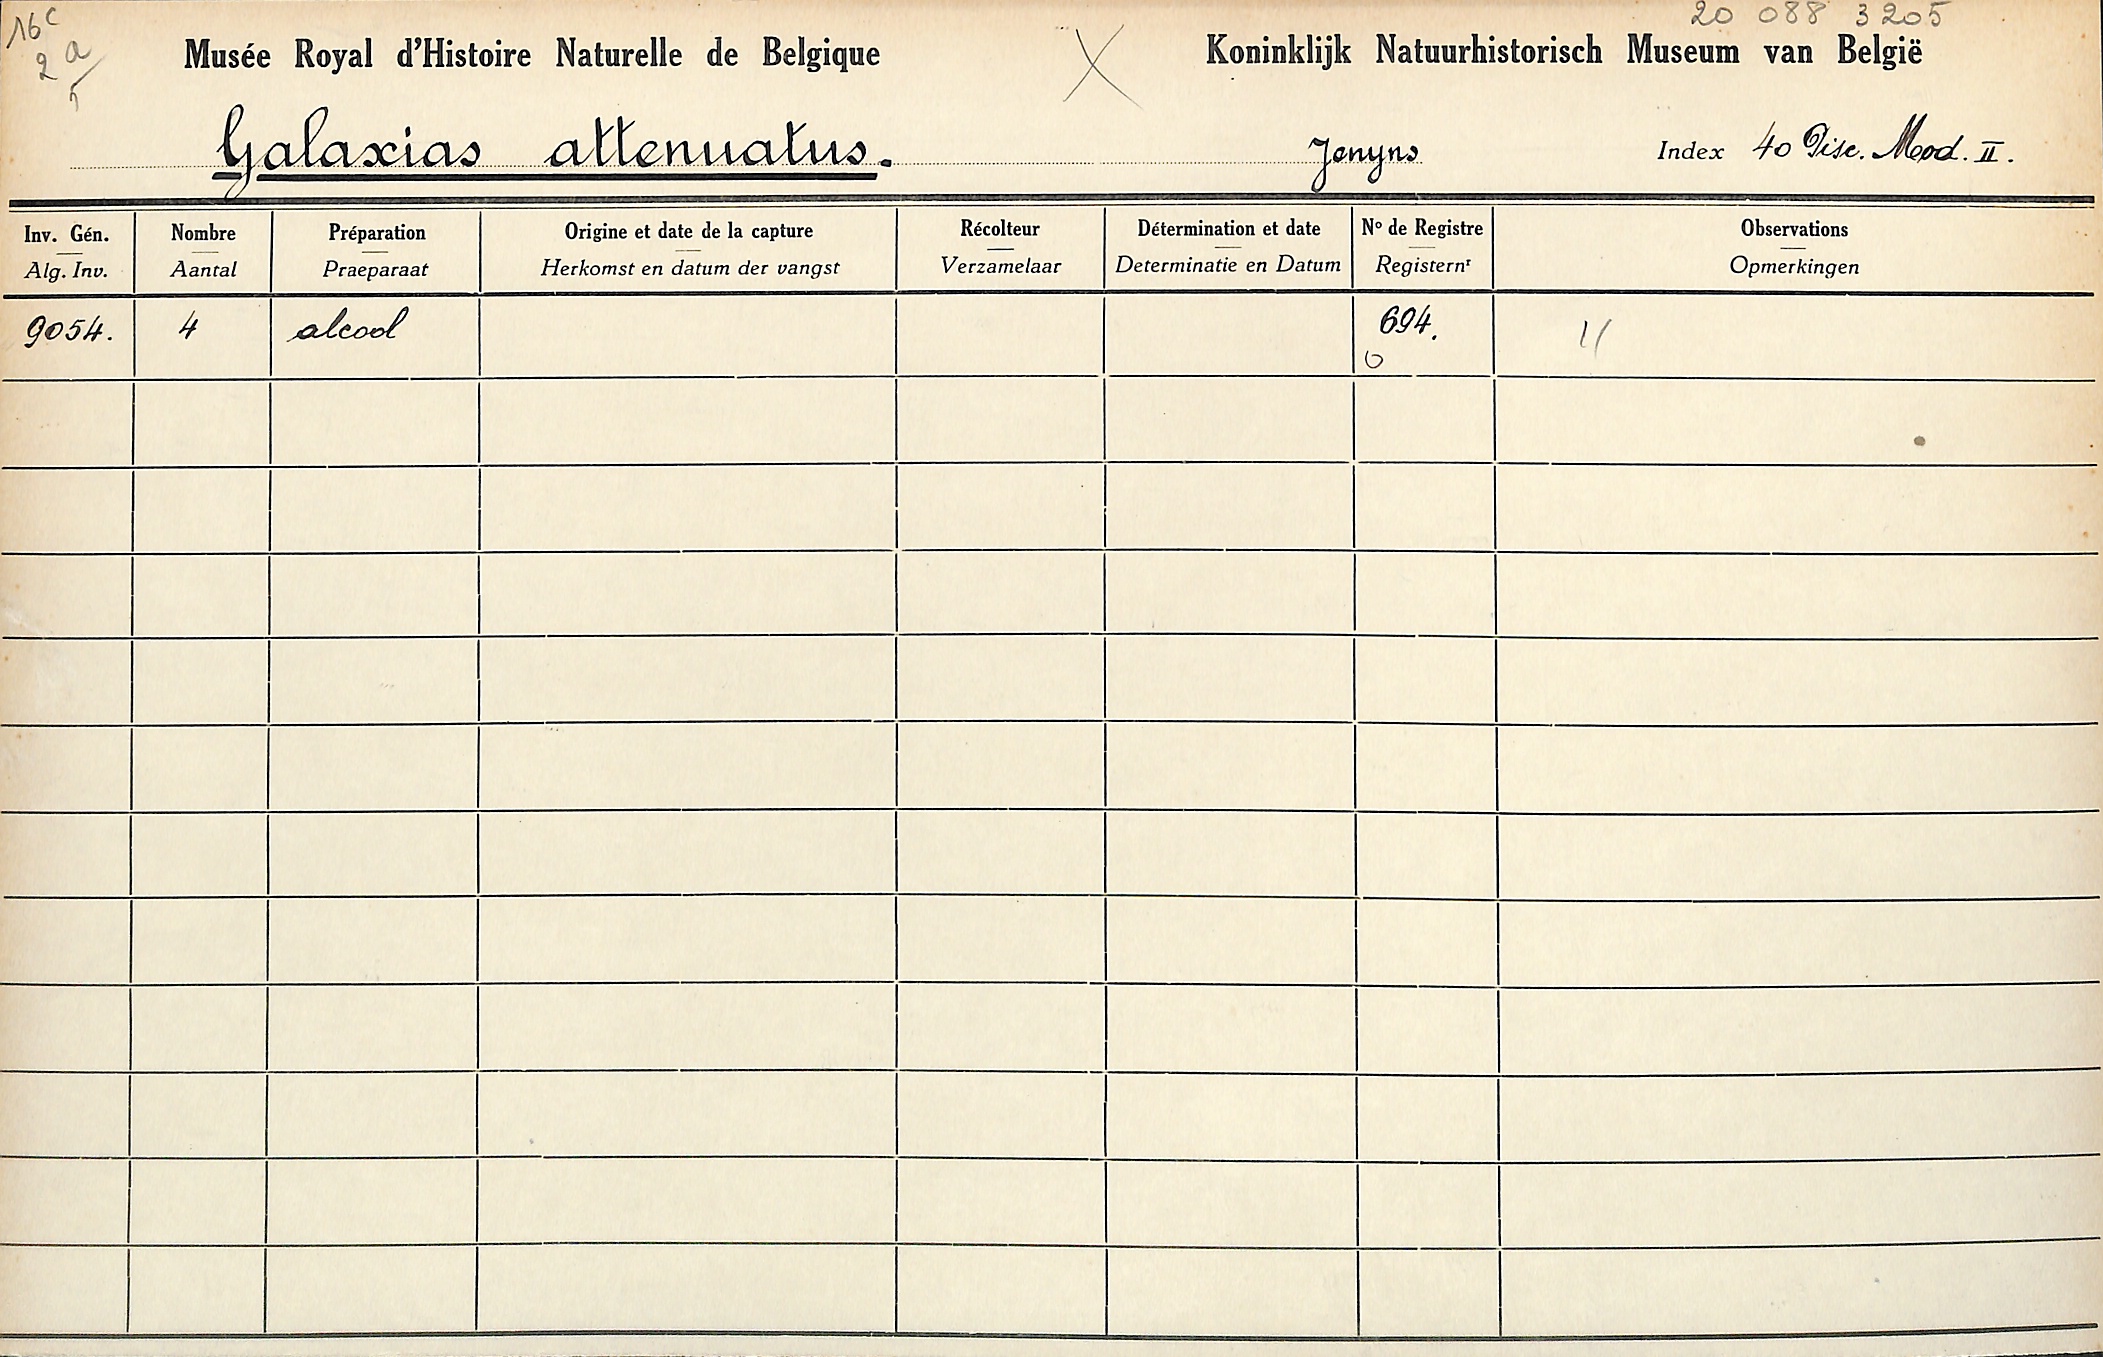 16c
2 a
5
20 088 3205
Musée Royal d'Histoire Naturelle de Belgique
X
Koninklijk Natuurhistorisch Museum van België
Galaxias attenuatus.
Jenyns
Index 40 Pisc. Mod. II.
Inv. Gén.
Alg. Inv.
Nombre
Aantal
Préparation
Praeparaat
Origine et date de la capture
Herkomst en datum der vangst
Récolteur
Verzamelaar
Détermination et date
Determinatie en Datum
Nº de Registre
Registernʳ
Observations
Opmerkingen
9054. 4 alcool 694.